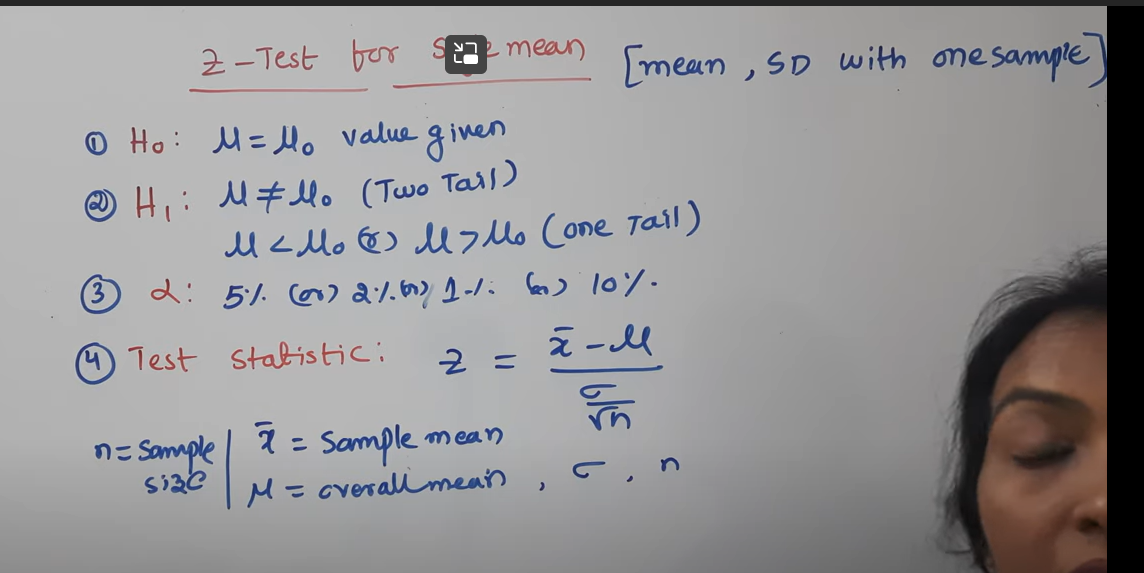 Z-Test for mean [mean, SD with one sample]
① H₀: μ = μ₀ value given
② H₁: μ ≠ μ₀ (Two Tail)
μ < μ₀ (or) μ > μ₀ (one Tail)
③ α: 5% (or) 2% (or) 1% (or) 10%.
④ Test Statistic: Z = (x̄ - μ) / (σ/√n)
n = Sample size | x̄ = Sample mean
μ = overall mean, σ, n